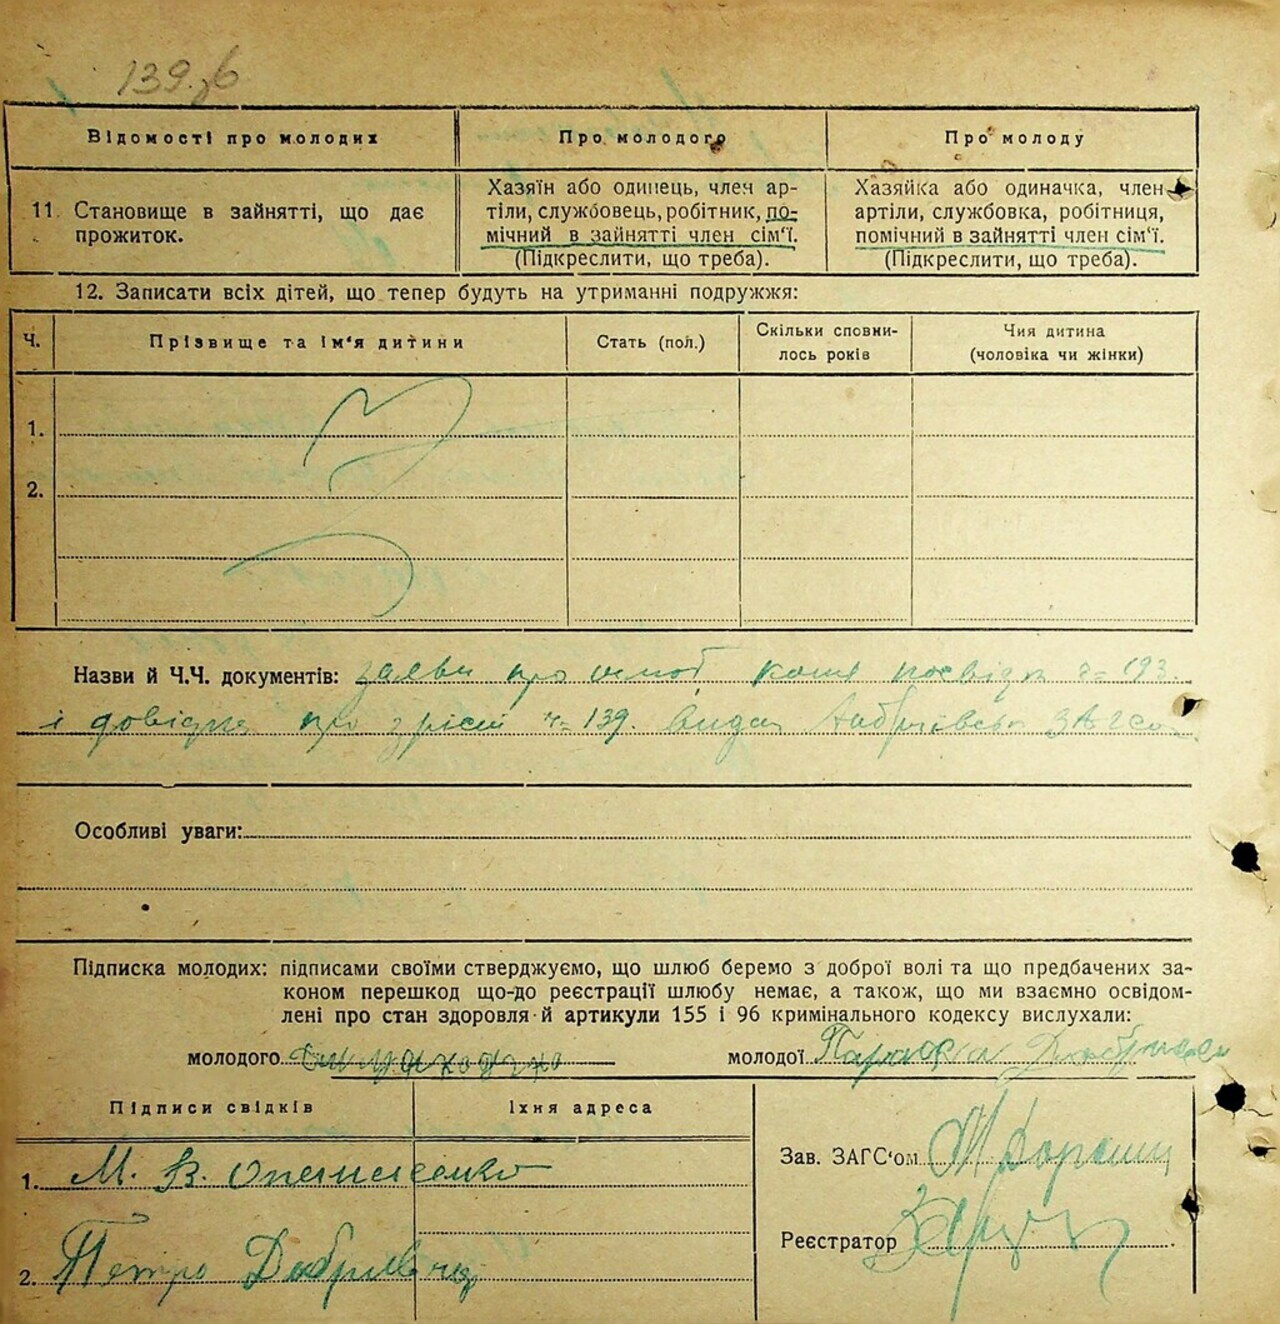 139.зб
Відомості про молодих
Про молодого
Про молоду
11. Становище в зайнятті, що дає
прожиток.
Хазяїн або одинець, член ар-
тіли, службовець, робітник, по-
мічний в зайнятті член сім'ї.
(Підкреслити, що треба).
Хазяйка або одиначка, член
артіли, службовка, робітниця,
помічний в зайнятті член сім'ї.
(Підкреслити, що треба).
12. Записати всіх дітей, що тепер будуть на утриманні подружжя:
Ч.
Прізвище та ім'я дитини
Стать (пол.)
Скільки сповни-
лось років
Чия дитина
(чоловіка чи жінки)
1.
2.
Назви й Ч.Ч. документів: заяви про 193.
і довідка про зріст ч= 139. видан ЗАГСом
Особливі уваги:
Підписка молодих: підписами своїми стверджуємо, що шлюб беремо з доброї волі та що предбачених за-
коном перешкод що-до реєстрації шлюбу немає, а також, що ми взаємно освідом-
лені про стан здоровля й артикули 155 і 96 кримінального кодексу вислухали:
молодого
молодої
Підписи свідків
Їхня адреса
1. М. В.
2. Петро
Зав. ЗАГС'ом
Реєстратор